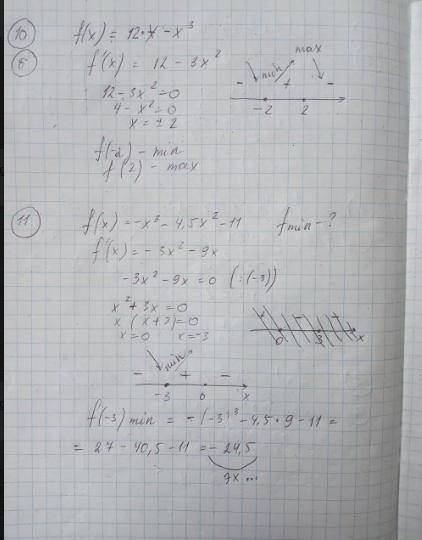 10
f(x) = 12·x - x³
б
f'(x) = 12 - 3x²
12 - 3x² = 0
4 - x² = 0
x = ± 2
max
- min + -
-2 2
f(-2) - min
f(2) - max
11
f(x) = -x³ - 4,5x² - 11 fmin - ?
f'(x) = -3x² - 9x
-3x² - 9x = 0 (:(-3))
x² + 3x = 0
x (x+3) = 0
x = 0 x = -3
- min + -
-3 0 x
f(-3) min = -(-3)³ - 4,5·9 - 11 =
= 27 - 40,5 - 11 = -24,5